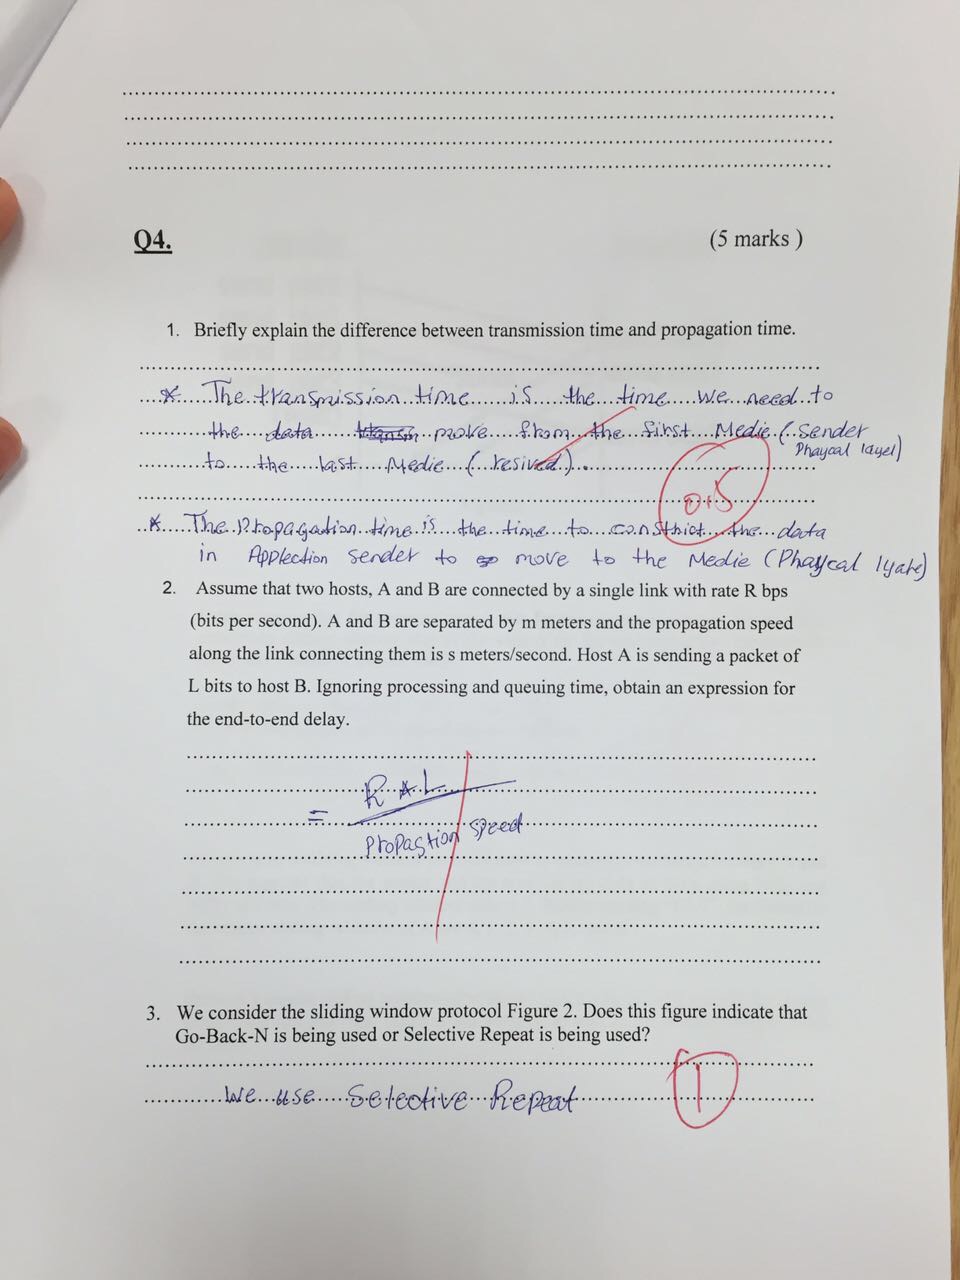 Q4.
(5 marks )
1. Briefly explain the difference between transmission time and propagation time.
* The transmission time is the time we need to
the data move from the first Medie ( Sender
Phaycal layel)
to the last Medie ( resived ).
0.5
* The Propagation time is the time to constrict the data
in Applection sender to move to the Medie ( Phaycal lyate)
2. Assume that two hosts, A and B are connected by a single link with rate R bps
(bits per second). A and B are separated by m meters and the propagation speed
along the link connecting them is s meters/second. Host A is sending a packet of
L bits to host B. Ignoring processing and queuing time, obtain an expression for
the end-to-end delay.
R * L
=
Propagtion speed
3. We consider the sliding window protocol Figure 2. Does this figure indicate that
Go-Back-N is being used or Selective Repeat is being used?
We use Selective Repeat
1